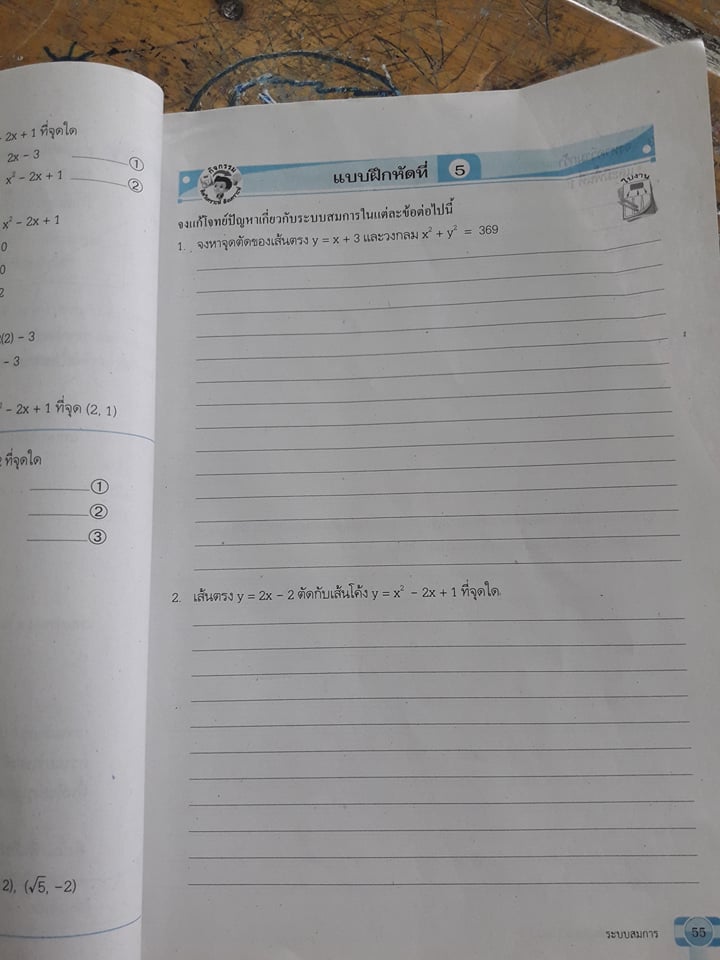 - 2x + 1 ที่จุดใด
2x - 3 ①
x² - 2x + 1 ②
x² - 2x + 1
0
0
2
(2) - 3
- 3
² - 2x + 1 ที่จุด (2, 1)
ที่จุดใด
①
②
③
2), (√5, -2)
กิจกรรม
แบบฝึกหัดที่ 5
ใบงาน
จงแก้โจทย์ปัญหาเกี่ยวกับระบบสมการในแต่ละข้อต่อไปนี้
1. จงหาจุดตัดของเส้นตรง y = x + 3 และวงกลม x² + y² = 369
2. เส้นตรง y = 2x - 2 ตัดกับเส้นโค้ง y = x² - 2x + 1 ที่จุดใด
ระบบสมการ 55